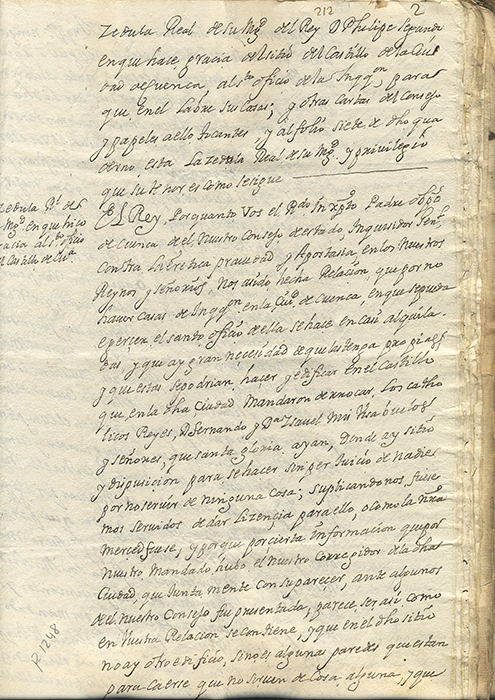 212 2
Zedula Real de Su Mg.d del Rey D Phelipe Segundo
en que hace gracia del sitio del Castillo de la Ciu
dad de Cuenca, al s.to oficio de la Inqq.on, para
que en el Labre Sus Casas; y otras Cartas del Consejo
y papeles a ello tocantes y al folio siete de dho qua
derno esta La Zedula Real de su Mg.d y privilegio
que su thenor es como se sigue
Zedula R.l de S.
Mg.d en que hizo
gracia al s.to oficio
del Castillo de
El Rey, Por quanto Vos el R.do In xpto Padre obpo
de Cuenca del Nuestro Consejo de estado, Inquisidor Gen.l
Contra La heretica pravedad y Apostasia en los Nuestros
Reynos y señorios, Nos a sido hecha Relacion que por no
haver Casas de Inqq.on en la Ciu.d de Cuenca en que se pueda
exercer el santo oficio de ella se hace en Casas alquila
das y que ay gran necesidad de que las tenga propias
y que estas se podrian, hacer y edificar en el Castillo
que en la dha Ciudad Mandaron derrocar, Los catho
licos Reyes, D fernando y D.a Isavel Mis Visabuelos
y señores, que santa gloria ayan, donde ay sitio
y disposicion para se hacer sin per Juicio de Nadie
por no servir de ninguna Cosa; suplicandonos, fuese
mos servidos de dar Lizencia para ello, o como la nra
merced fuese, y porque por cierta Informacion que por
Nuestro Mandado hubo, el Nuestro Corregidor de la dha
Ciudad, que Junta mente Con su parecer, ante algunos
del nuestro Consejo fue presentada, parece, ser asi como
en Vuestra Relacion se contiene, y que en el dho sitio
no ay otro edificio, sino es algunas paredes que estan
para Caerse que no sirven de Cosa alguna, y que
R. 1248